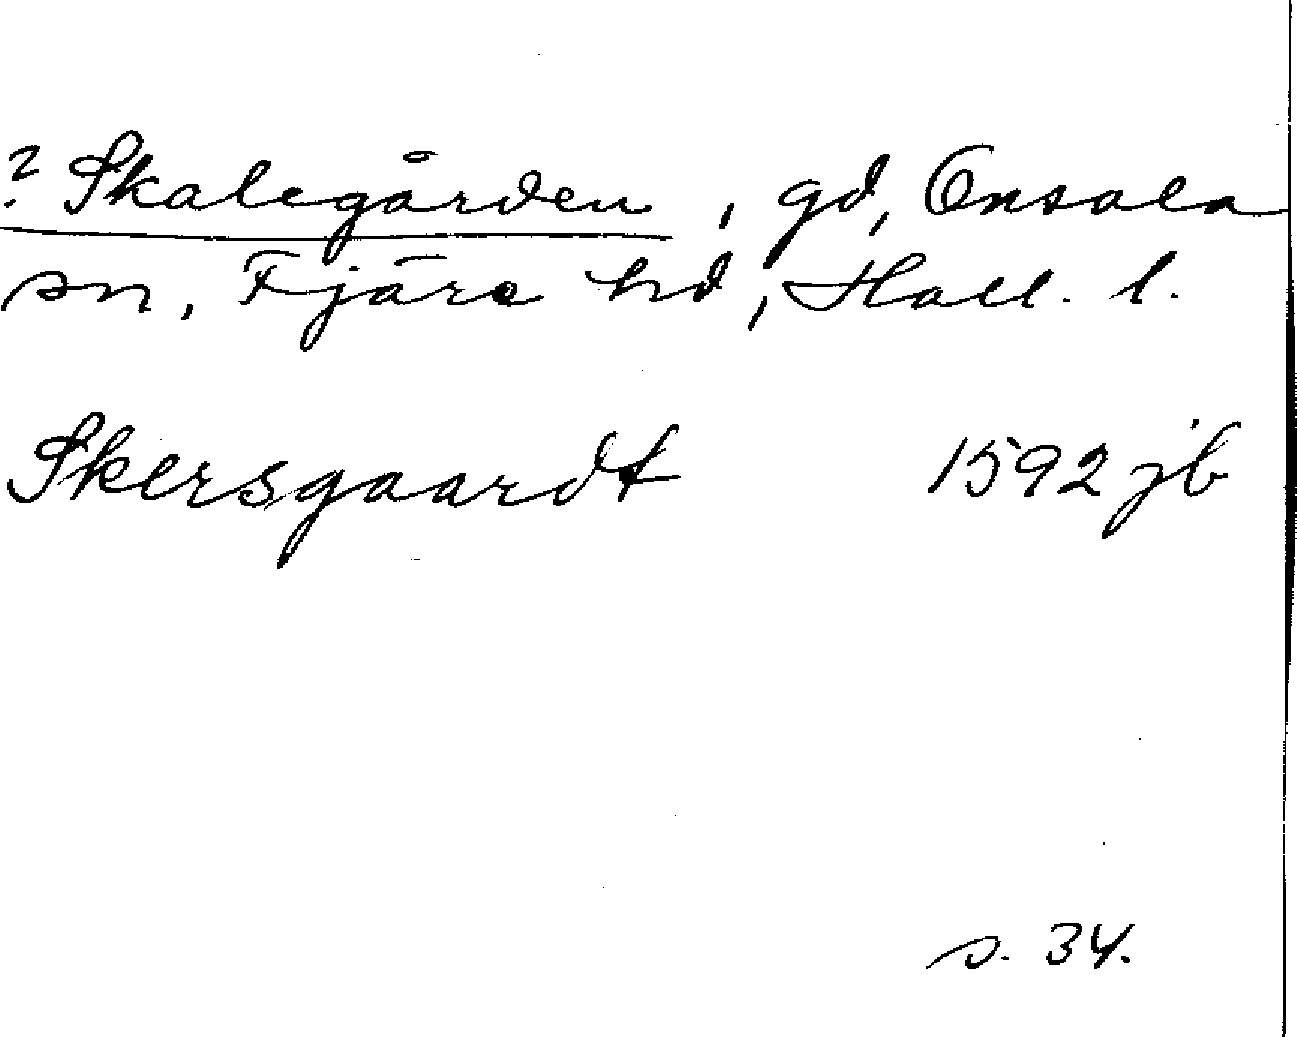 ? Skalegården, gd, Onsala
sn, Fjäre hd, Hall. l.
Skersgaardt 1592 jb
s. 34.